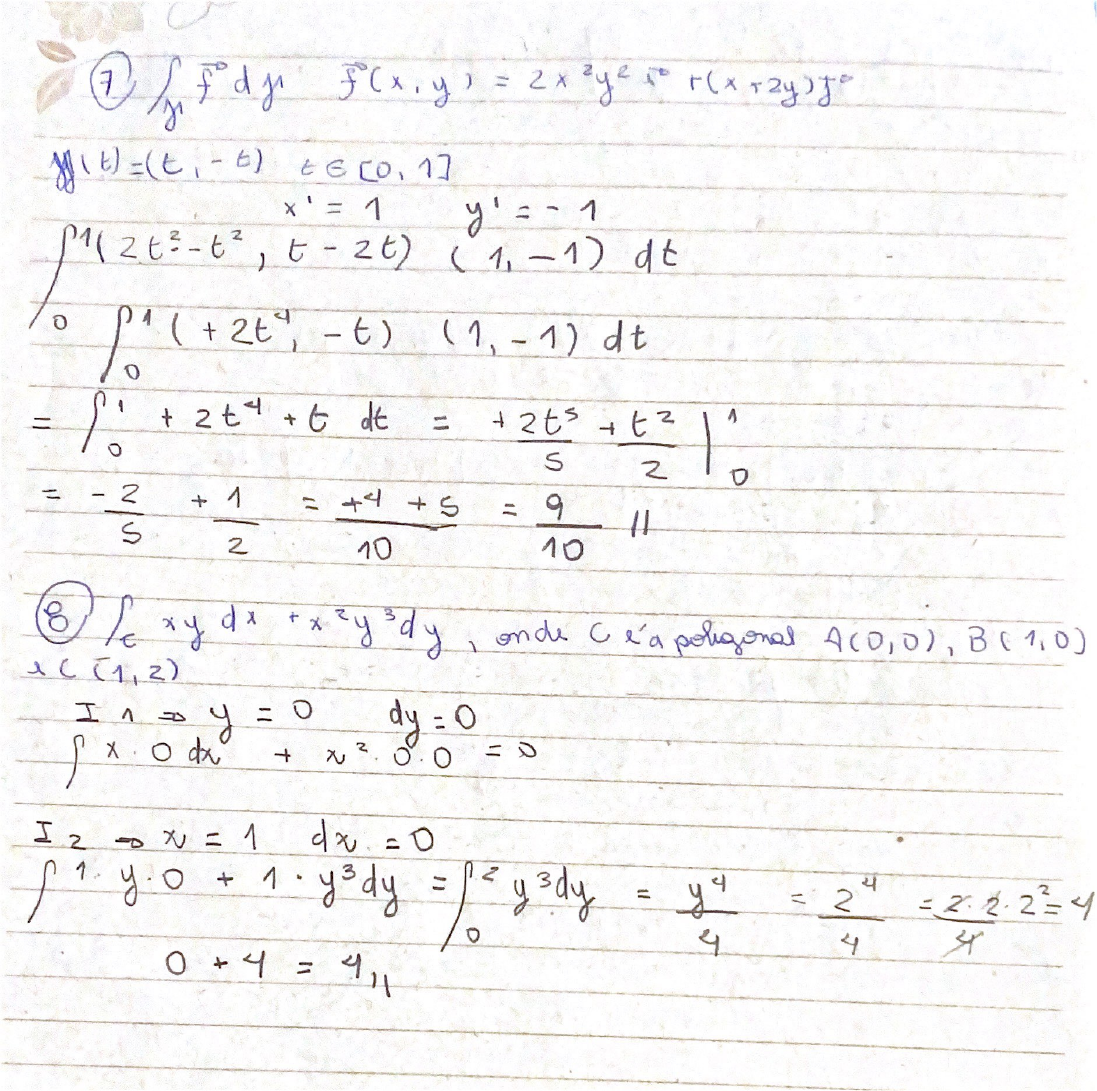 ⑦ ∫γ f⃗ dγ f⃗(x, y) = 2x²y² i⃗ + (x + 2y) j⃗
γ(t) = (t, -t) t ∈ [0, 1]
x' = 1 y' = -1
∫₀¹ (2t² · -t², t - 2t) (1, -1) dt
∫₀¹ (+2t⁴, -t) (1, -1) dt
= ∫₀¹ +2t⁴ + t dt = +2t⁵/5 + t²/2 |₀¹
= -2/5 + 1/2 = +4 + 5/10 = 9/10 //
⑧ ∫c xy dx + x²y³dy, onde C é a poligonal A(0,0), B(1,0)
e C(1,2)
I 1 ⇒ y = 0 dy = 0
∫ x · 0 dx + x² · 0 · 0 = 0
I 2 ⇒ x = 1 dx = 0
∫ 1 · y · 0 + 1 · y³dy = ∫₀² y³dy = y⁴/4 = 2⁴/4 = 2 · 2 · 2²/4 = 4
0 + 4 = 4 //